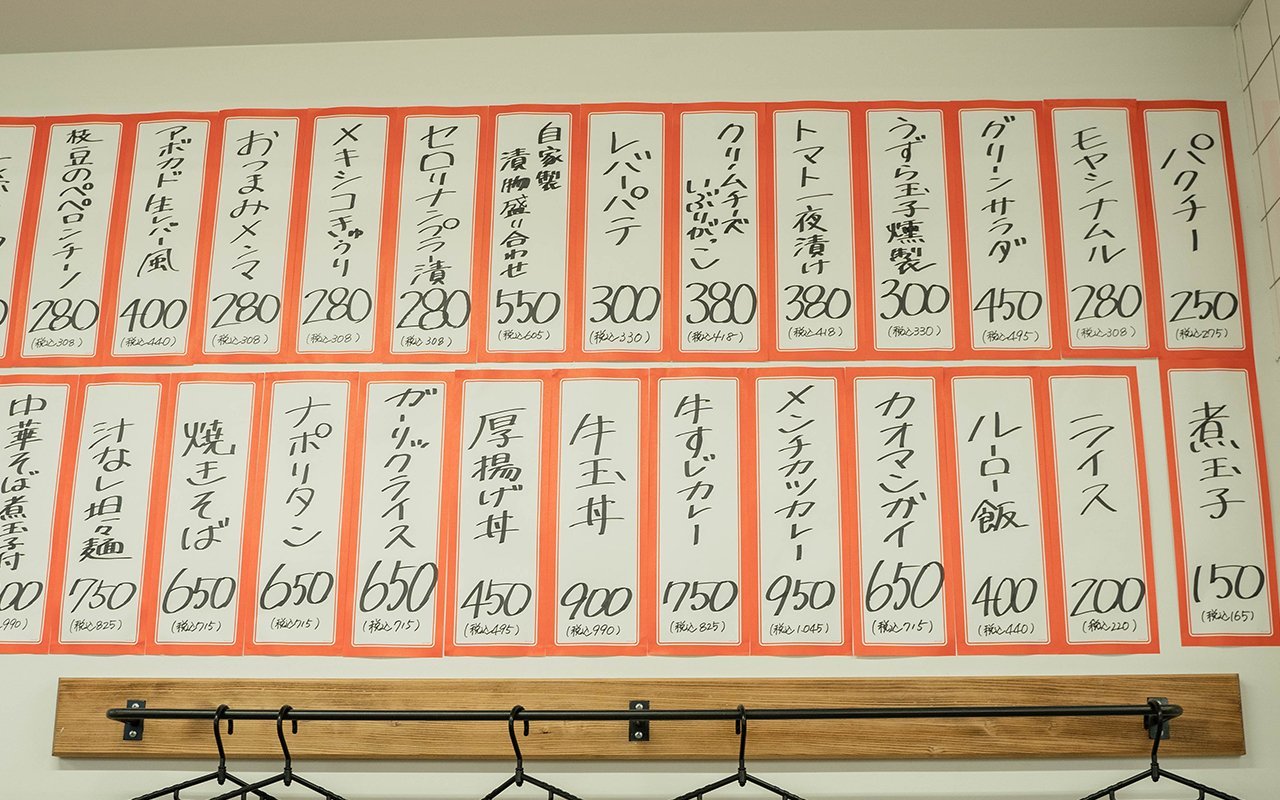 パクチー
250
(税込275)
モヤシナムル
280
(税込308)
グリーンサラダ
450
(税込495)
うずら玉子燻製
300
(税込330)
トマト一夜漬け
380
(税込418)
クリームチーズ
いぶりがっこ
380
(税込418)
レバーパテ
300
(税込330)
自家製
漬物盛り合わせ
550
(税込605)
セロリナンプラー漬
280
(税込308)
メキシコきゅうり
280
(税込308)
おつまみメンマ
280
(税込308)
アボカド生レバー風
400
(税込440)
枝豆のペペロンチーノ
280
(税込308)
煮玉子
150
(税込165)
ライス
200
(税込220)
ルーロー飯
400
(税込440)
カオマンガイ
650
(税込715)
メンチカツカレー
950
(税込1.045)
牛すじカレー
750
(税込825)
牛玉丼
900
(税込990)
厚揚げ丼
450
(税込495)
ガーリックライス
650
(税込715)
ナポリタン
650
(税込715)
焼きそば
650
(税込715)
汁なし坦々麺
750
(税込825)
中華そば煮玉子付
00
990)